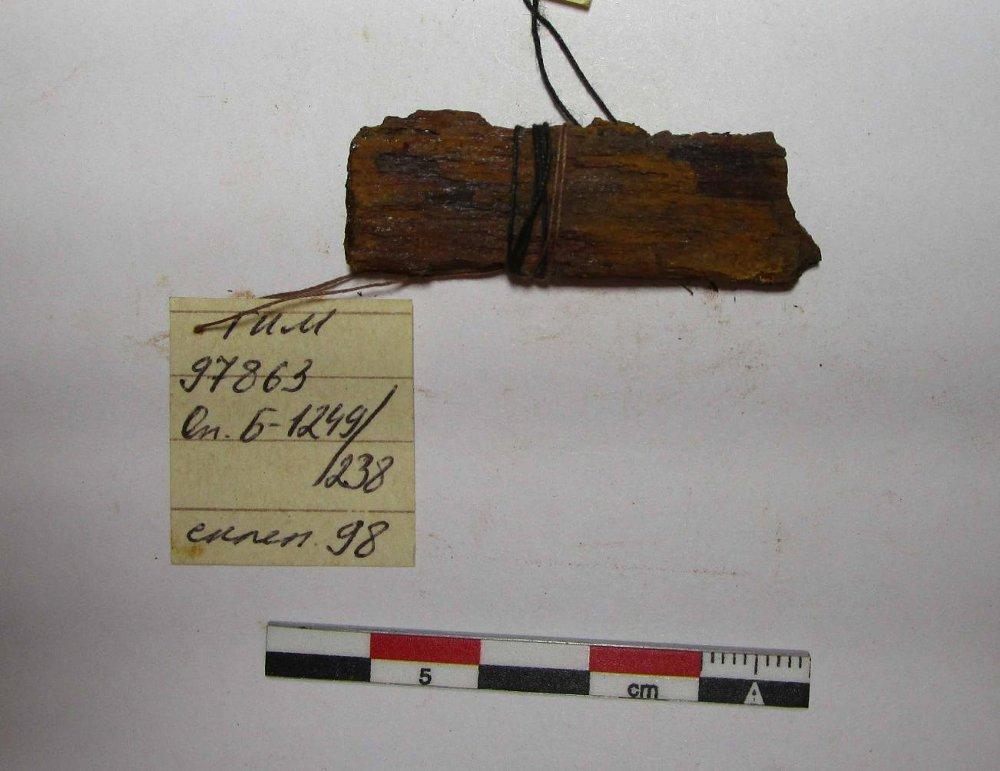 ГИМ
97863
Оп. Б-1249/
/238
склеп. 98
5 cm
A